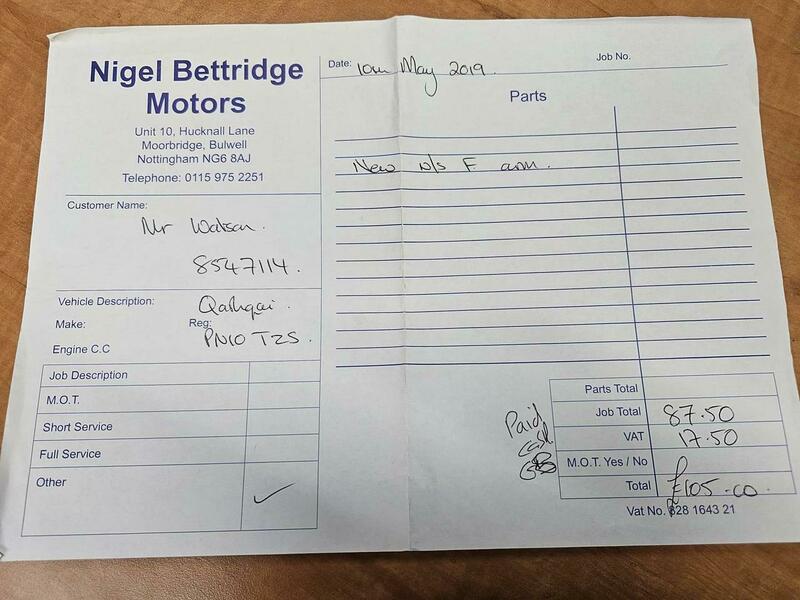 Nigel Bettridge
Motors
Unit 10, Hucknall Lane
Moorbridge, Bulwell
Nottingham NG6 8AJ
Telephone: 0115 975 2251
Customer Name:
Mr Watson.
8547114.
Vehicle Description: Qashqai.
Make:
Reg: PN10 TZS.
Engine C.C
Job Description
M.O.T.
Short Service
Full Service
Other ✓
Date: 10th May 2019.
Job No.
Parts
New n/s F arm.
Paid
cash
Parts Total
Job Total 87.50
VAT 17.50
M.O.T. Yes / No
Total £105.00.
Vat No. 828 1643 21